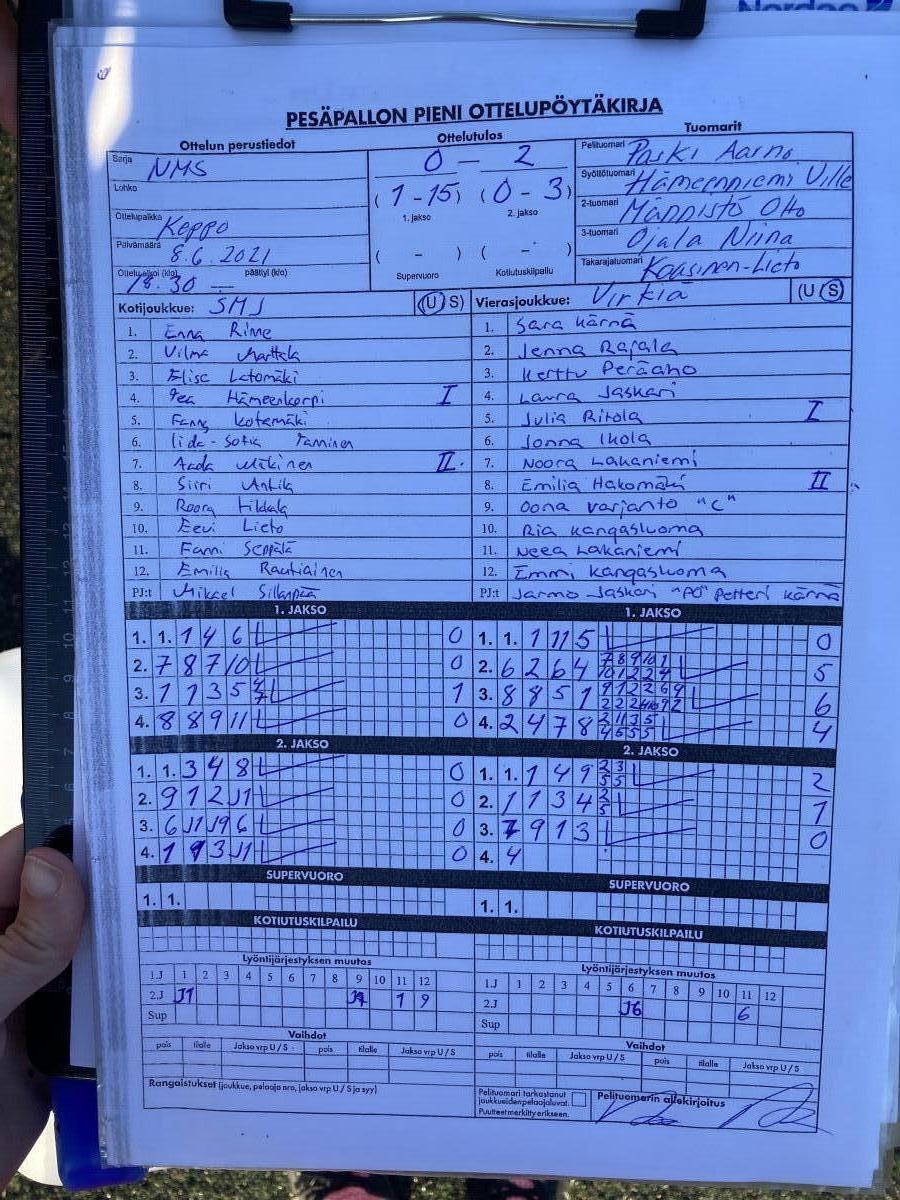 Nordea
PESÄPALLON PIENI OTTELUPÖYTÄKIRJA
Ottelun perustiedot
Ottelutulos
Tuomarit
Sarja NMS
0 - 2
Pelituomari Paski Aarno
Lohko
(1-15) (0-3)
Syöttötuomari Hämeenniemi Ville
1. jakso 2. jakso
2-tuomari Männistö Otto
Ottelupaikka Keppo
3-tuomari Ojala Niina
Päivämäärä 8.6.2021
( - ) ( - )
Takarajatuomari Kaasinen-Lieto
Ottelu alkoi (klo) 18.30 päättyi (klo) —
Supervuoro Kotiutuskilpailu
Kotijoukkue: SMJ (U S)
Vierasjoukkue: Virkiä (U S)
1. Enna Rime
2. Vilma Marttala
3. Elisa Latomäki
4. Tea Hämeenkorpi I
5. Fanny Kotamäki
6. Iida-Sofia Tamminen
7. Aada Mäkinen II.
8. Siiri Anttila
9. Roosa Hildala
10. Eevi Lieto
11. Fanni Seppälä
12. Emilia Rautiainen
PJ:t Mikael Sillanpää
1. Sara Kärnä
2. Jenna Rajala
3. Kerttu Peräaho
4. Laura Jaskari
5. Julia Ritola I
6. Jonna Ikola
7. Noora Lakaniemi
8. Emilia Hakomäki II
9. Oona Varjanto "C"
10. Ria Kangasluoma
11. Neea Lakaniemi
12. Emmi Kangasluoma
PJ:t Jarmo Jaskari "PO" Petteri Kärnä
1. JAKSO
1. 1. 1 4 6 0
2. 7 8 7 10 0
3. 1 1 3 5 4 7 1
4. 8 8 9 11 0
1. JAKSO
1. 1. 1 11 5 0
2. 6 2 6 4 7 8 9 10 1 5
3. 8 8 5 1 6
4. 2 4 7 8 4
2. JAKSO
1. 1. 3 4 8 0
2. 9 1 2 J1 0
3. 6 J1 J9 6 0
4. 1 9 3 J1 0
2. JAKSO
1. 1. 1 4 9 2 3 5 5 2
2. 1 1 3 4 2 5 1
3. 7 9 1 3 0
4. 4
SUPERVUORO
1. 1.
SUPERVUORO
1. 1.
KOTIUTUSKILPAILU
KOTIUTUSKILPAILU
Lyöntijärjestyksen muutos
1.J 1 2 3 4 5 6 7 8 9 10 11 12
2.J J1 1 9
Sup
Lyöntijärjestyksen muutos
1.J 1 2 3 4 5 6 7 8 9 10 11 12
2.J J6 6
Sup
Vaihdot
pois tilalle Jakso vrp U / S pois tilalle Jakso vrp U / S
Vaihdot
pois tilalle Jakso vrp U / S pois tilalle Jakso vrp U / S
Rangaistukset (joukkue, pelaaja nro, jakso vrp U / S ja syy)
Pelituomari tarkastanut
joukkueidenpelaajaluvat.
Puutteetmerkittyerikseen.
Pelituomarin allekirjoitus